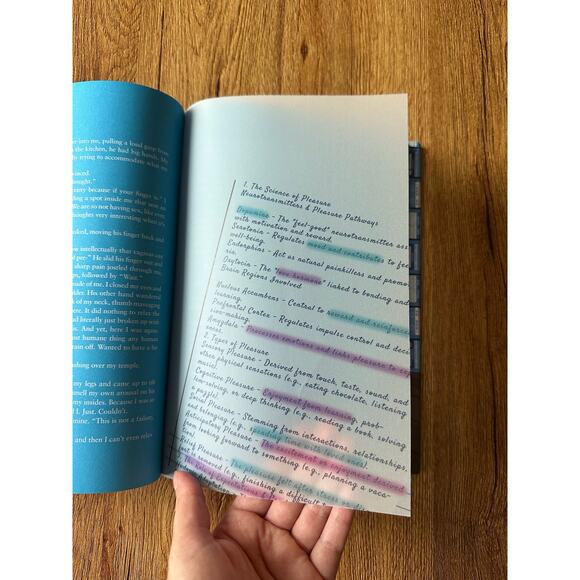 er into me, pulling a loud gasp from
the kitchen, he had big hands. My
ly trying to accommodate what
winced.
hought."
arry because if your finger is"
ding a spot inside me that
We are so not having sex, like ever.
thoughts very interesting when it's
asked, moving his finger back and
you intellectually that vaginas can
of per-" He slid his finger out and
sharp pain jostled through me,
gn, followed by "Wait."
side of me. I closed my eyes and
older. His other hand wandered
k of my neck, thumb massaging
there. It did nothing to relax the
had literally just broken up with
us. And yet, here I was again
ost humane thing any human
train off. Wanted to have a
shing over my temple.
my legs and came up to tilt
smell my own arousal on his
my insides. Because I was so
d I. Just. Couldn't.
mine. "This is not a failure,
and then I can't even relax
1. The Science of Pleasure
Neurotransmitters & Pleasure Pathways
Dopamine - The "feel-good" neurotransmitter ass
with motivation and reward.
Serotonin - Regulates mood and contributes to fee
well-being.
Endorphins - Act as natural painkillers and promo
ria.
Oxytocin - The "love hormone" linked to bonding and
Brain Regions Involved
Nucleus Accumbens - Central to reward and reinforce
learning.
Prefrontal Cortex - Regulates impulse control and deci
sion-making.
Amygdala - Processes emotions and links pleasure to exp
ences.
2. Types of Pleasure
Sensory Pleasure - Derived from touch, taste, sound, and
other physical sensations (e.g., eating chocolate, listening
music).
Cognitive Pleasure - Enjoyment from learning, prob-
lem-solving, or deep thinking (e.g., reading a book, solving
a puzzle).
Social Pleasure - Stemming from interactions, relationships,
and belonging (e.g., spending time with loved ones).
Anticipatory Pleasure - The excitement or enjoyment derived
from looking forward to something (e.g., planning a vaca-
tion).
Relief Pleasure - The pleasure felt after stress
is removed (e.g., finishing a difficult